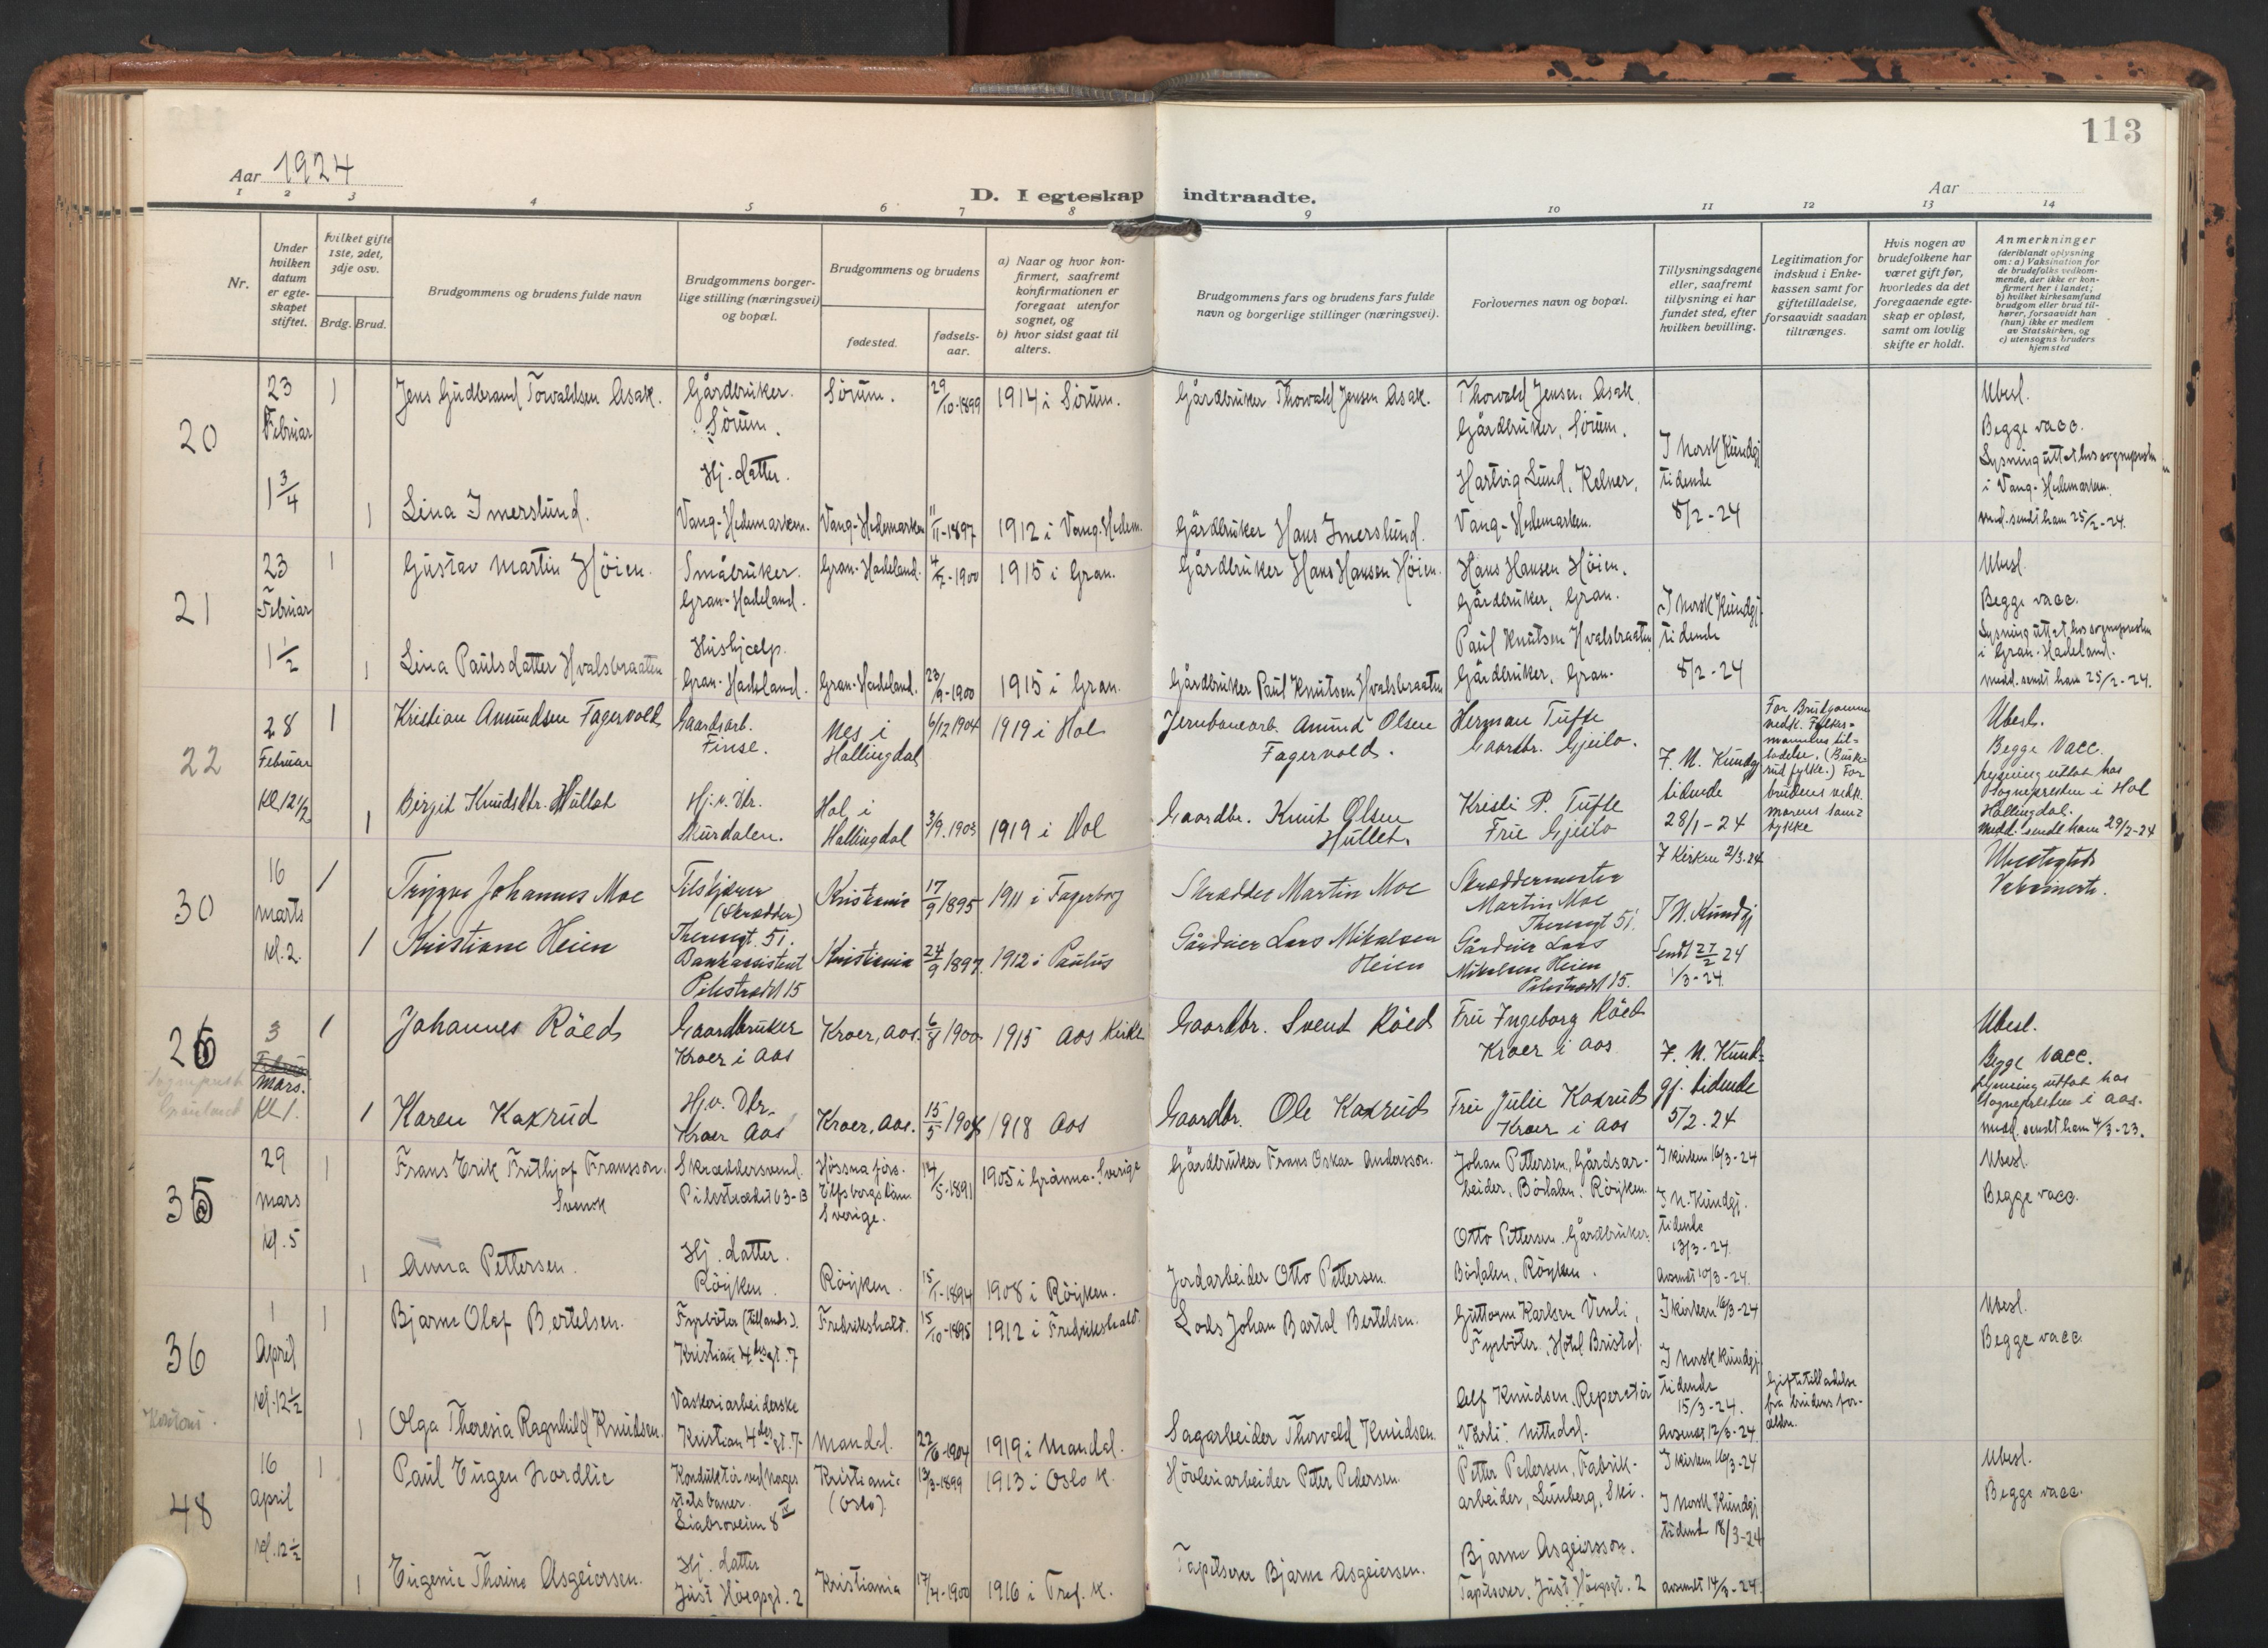 113
Aar 1924
D. I egteskap indtraadte.
Aar
1 2 3 4 5 6 7 8 9 10 11 12 13 14
Nr.
Under hvilken datum er egteskapet stiftet.
Hvilket gifte 1ste, 2det, 3dje osv.
Brdg. Brud.
Brudgommens og brudens fulde navn
Brudgommens borgerlige stilling (næringsvei) og bopæl.
Brudgommens og brudens
fødested.
fødselsaar.
a) Naar og hvor konfirmert, saafremt konfirmationen er foregaat utenfor sognet, og
b) hvor sidst gaat til alters.
Brudgommens fars og brudens fars fulde navn og borgerlige stillinger (næringsvei).
Forlovernes navn og bopæl.
Tillysningsdagene eller, saafremt tillysning ei har fundet sted, efter hvilken bevilling.
Legitimation for indskud i Enkekassen samt for giftetilladelse, forsaavidt saadan tiltrænges.
Hvis nogen av brudefolkene har været gift før, hvorledes da det foregaaende egteskap er opløst, samt om lovlig skifte er holdt.
Anmerkninger
(deriblandt oplysning om: a) Vaksination for de brudefolks vedkommende, der ikke er konfirmert her i landet; b) hvilket kirkesamfund brudgom eller brud tilhører, forsaavidt han (hun) ikke er medlem av Statskirken, og c) utensogns bruders hjemsted
20
23 Februar 1 3/4
1
Jens Gudbrand Torvaldsen Asak.
Gårdbruker. Sörum.
Sörum.
29/10-1899
1914 i Sörum.
Gårdbruker Thorvald Jensen Asak.
Thorvald Jensen Asak, Gårdbruker, Sörum.
I Norsk Kundgj tidende 8/2-24
Ubesl.
Begge vacc.
Lysning uttat hos sognepresten i Vang-Hedemarken.
med. sendt ham 25/2-24.
1
Lina Imerslund.
Hj. datter. Vang-Hedemarken.
Vang-Hedemarken
11/11-1897
1912 i Vang. Hedem.
Gårdbruker Hans Imerslund.
Hartvig Lund, Kelner, Vang-Hedemarken.
21
23 Februar 1 1/2
1
Gustav Martin Höien.
Småbruker. Gran-Hadeland.
Gran-Hadeland.
4/2-1900
1915 i Gran.
Gårdbruker Hans Hansen Höien.
Hans Hansen Höien, Gårdbruker, Gran.
I Norsk Kundgj. tidende 8/2-24
Ubesl.
Begge vacc.
Lysning uttat hos sognepresten i Gran-Hadeland.
medd. sendt ham 25/2-24.
1
Lina Paulsdatter Hvalsbraaten
Hushjælp. Gran-Hadeland.
Gran-Hadeland.
23/9-1900
1915 i Gran.
Gårdbruker Paul Knutsen Hvalsbraaten
Paul Knutsen Hvalsbraaten Gårdbruker, Gran.
22
28 Februar Kl 12 1/2
1
Kristian Amundsen Fagervold
Gaardsarb. Finse.
Nes i Hallingdal
6/12 1904
1919 i Hol
Jernbanearb. Amund Olsen Fagervold.
Herman Tufte Gaardbr. Gjeilo.
F. N. Kundgj tidende 28/1-24
For Brudgommens vedk. Fylkesmannens tilladelse. (Buskerud fylke.) For brudens vedk. morens samtykke
Ubesl.
Begge Vacc.
Lysning uttat hos Sognepresten i Hol Hallingdal.
Medd. sendt ham 29/2-24
1
Birgit Knudsdtr. Hullet
Hj.v. Dtr. Murdalen.
Hol i Hallingdal
3/9.1903
1919 i Hol
Gaardbr. Knut Olsen Hullet.
Kristi P. Tufte Frue Gjeilo
30
16 Marts kl. 2.
1
Trygve Johannes Moe
Tilskjærer (Skrædder) Theresgt. 51.
Kristiania
17/9 1895
1911 i Fagerborg
Skrædder Martin Moe
Skræddermester Martin Moe Theresgt 51.
I Kirken 2/3-24
I N. Kundgj
Sendt 27/2 24
1/3-24.
Ubeslegtede
Vaksinerte.
1
Kristiane Heien
Bankassistent Pilestrædet 15
Kristiania
24/9 1897.
1912 i Paulus
Gårdeier Lars Mikalsen Heien
Gårdeier Lars Mikalsen Heien Pilestrædet 15.
26
3 Mars. Kl 1.
1
Johannes Röed
Gaardbruker Kroer i Aas
Kroer, Aas.
6/8 1900
1915 Aas Kirke
Gaardbr. Svend Röed
Frue Ingeborg Röed Kroer i Aas
F. N. Kundgj. tidende 5/2.24
Ubesl.
Begge Vacc.
Lysning uttat hos Sognepresten i Aas.
med. sendt ham 4/3-23.
1
Karen Kaxrud
Hj.v. Dtr. Kroer Aas
Kroer, Aas.
1918 Aas
Gaardbr. Ole Kaxrud
Frue Julie Kaxrud Kroer i Aas
35
29 Mars kl. 5
1
Frans Erik Frithjof Fransson. Svensk
Skræddersvend. Pilestrædet 63-B
Hössna förs. Elfsborgs län Sverige.
14/5-1891
1905 i Gränna. Sverige
Gårdbruker Frans Oskar Andersson.
Johan Pettersen, Gårdsarbeider, Bödalen, Röyken.
I kirken 16/3-24
I N. Kundgj. tidende 13/3-24.
Avsendt 10/3-24.
Ubesl.
Begge vacc.
1
Anna Pettersen.
Hj. datter. Röyken.
Röyken.
15/1-1894
1908 i Röyken.
Jordarbeider Otto Pettersen.
Otto Pettersen Gårdbruker. Bödalen, Röyken.
36
1 April kl. 12 1/2
1
Bjarne Olaf Bertelsen.
Fyrböter (tillands). Kristian 4des gt. 7
Fredrikshald.
15/10-1895
1912 i Fredrikshald.
Lods Johan Bartol Bertelsen.
Guttorm Karlsen Venli, Fyrböter, Hotel Bristol.
I kirken 16/3-24
I Norsk Kundgj. tidende 15/3-24.
Avsendt 12/3-24.
Giftetilladelse fra brudens forældre.
Ubesl.
Begge vacc.
1
Olga Theresia Ragnhild Knudsen.
Vaskeriarbeiderske Kristian 4des gt. 7-
Mandal.
22/6-1904
1919 i Mandal.
Sagarbeider Thorvald Knudsen.
Alf Knudsen, Reperatör "Varli". Nittedal.
48
16 April kl. 12 1/2
1
Paul Eugen Nordlie
Konduktör ved Norges statsbaner. Liabroveien 8 IV
Kristiania (Oslo)
13/3-1899
1913 i Oslo k.
Hövleriarbeider Petter Pedersen.
Petter Pedersen, Fabrikarbeider, Lunberg, Ski.
I kirken 16/3-24
I Norsk Kundgj tidend 18/3-24
avsendt 14/3-24.
Ubesl.
Begge vacc.
1
Eugenie Thorine Asgeirsen.
Hj. datter Just Høegsgt. 2
Kristiania
17/4-1900
1916 i Tref. k.
Tapetserer Bjarne Asgeirsen.
Bjarne Asgeirsson. Tapetserer, Just Høegsgt. 2